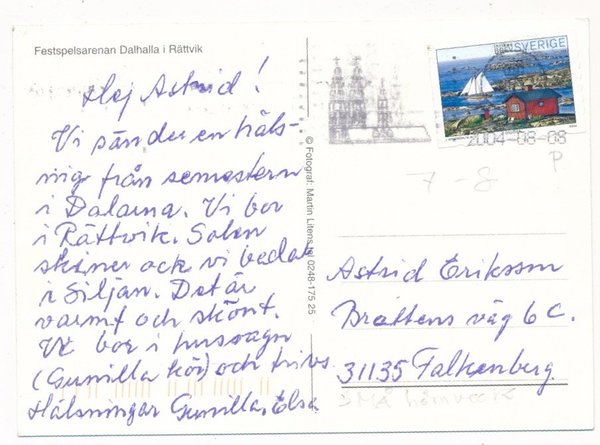 Festspelsarenan Dalhalla i Rättvik
Hej Astrid!
Vi sänder en häls-
ning från semestern
i Dalarna. Vi bor
i Rättvik. Solen
skiner och vi badar
i Siljan. Det är
varmt och skönt.
Vi bor i husvagn
(Gunilla kör) och trivs
Hälsningar Gunilla. Elsa
© Fotograf: Martin Litens tel 0248-175 25
SVERIGE
2004-08-08
7-8
P
Astrid Eriksson
Brattens väg 6 C.
31135 Falkenberg